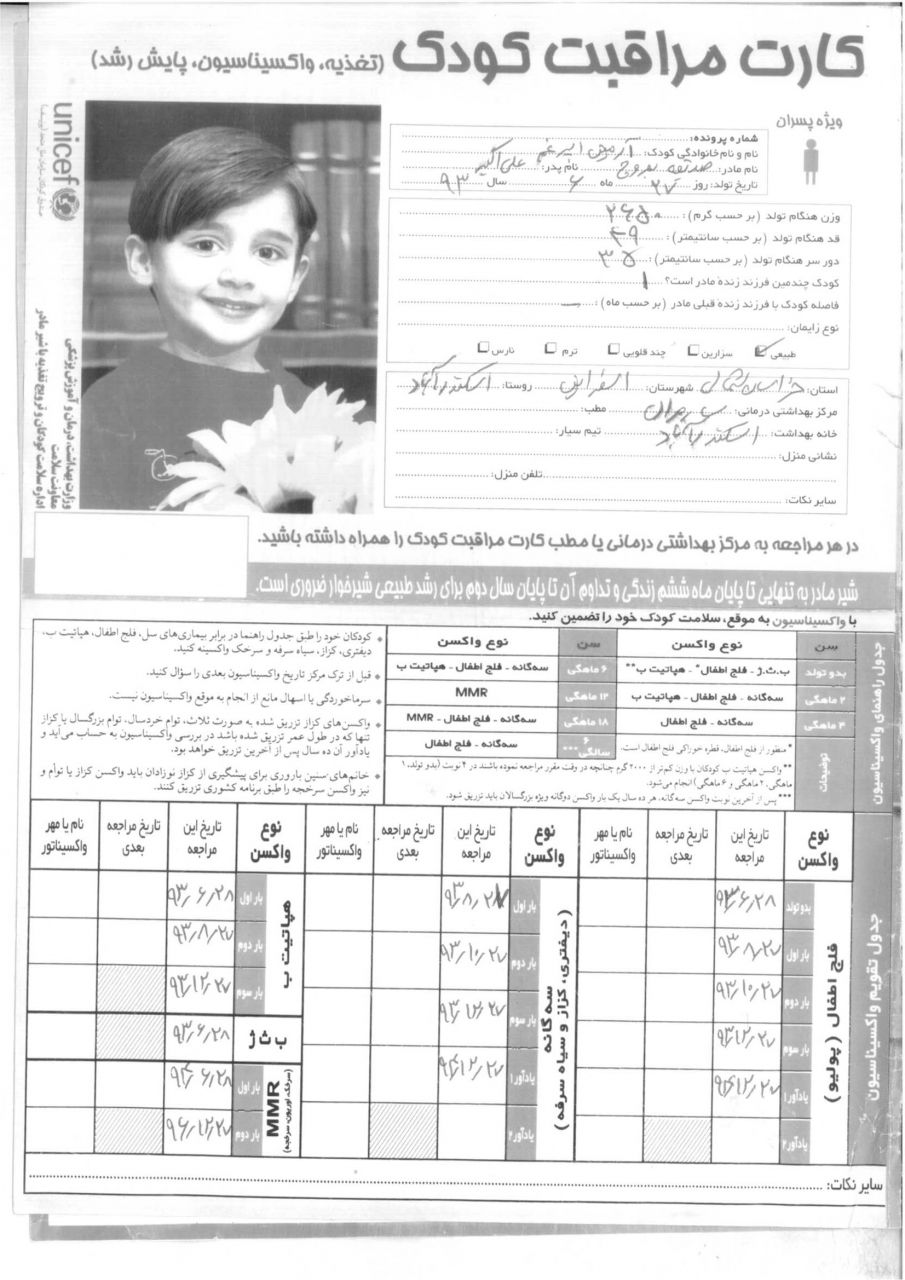 کارت مراقبت کودک (تغذیه، واکسیناسیون، پایش رشد)
ویژه پسران
unicef
وزارت بهداشت، درمان و آموزش پزشکی
معاونت سلامت
اداره سلامت کودکان و ترویج تغذیه با شیر مادر
شماره پرونده:
نام و نام خانوادگی کودک:
نام مادر: نام پدر: علی اکبر
تاریخ تولد: روز ۲۷ ماه ۶ سال ۹۳
وزن هنگام تولد (بر حسب گرم): ۲۶۵۰
قد هنگام تولد (بر حسب سانتیمتر): ۴۹
دور سر هنگام تولد (بر حسب سانتیمتر): ۳۵
کودک چندمین فرزند زنده مادر است؟ ۱
فاصله کودک با فرزند زنده قبلی مادر (بر حسب ماه): —
نوع زایمان:
طبیعی سزارین چند قلویی ترم نارس
استان: خراسان شمالی شهرستان: اسفراین روستا: اسکندرآباد
مرکز بهداشتی درمانی: مطب:
خانه بهداشت: اسکندرآباد تیم سیار:
نشانی منزل:
تلفن منزل:
سایر نکات:
در هر مراجعه به مرکز بهداشتی درمانی یا مطب کارت مراقبت کودک را همراه داشته باشید.
شیر مادر به تنهایی تا پایان ماه ششم زندگی و تداوم آن تا پایان سال دوم برای رشد طبیعی شیرخوار ضروری است.
با واکسیناسیون به موقع، سلامت کودک خود را تضمین کنید.
جدول راهنمای واکسیناسیون
سن نوع واکسن سن نوع واکسن
بدو تولد ب.ث.ژ - فلج اطفال* - هپاتیت ب** ۶ ماهگی سه‌گانه - فلج اطفال - هپاتیت ب
۲ ماهگی سه‌گانه - فلج اطفال - هپاتیت ب ۱۲ ماهگی MMR
۴ ماهگی سه‌گانه - فلج اطفال ۱۸ ماهگی سه‌گانه - فلج اطفال - MMR
۶ سالگی*** سه‌گانه - فلج اطفال
توضیحات
* منظور از فلج اطفال، قطره خوراکی فلج اطفال است.
** واکسن هپاتیت ب کودکان با وزن کم‌تر از ۲۰۰۰ گرم چنانچه در وقت مقرر مراجعه نموده باشند در ۴ نوبت (بدو تولد، ۱
ماهگی، ۲ ماهگی و ۶ ماهگی) انجام می‌شود.
*** پس از آخرین نوبت واکسن سه‌گانه، هر ده سال یک بار واکسن دوگانه ویژه بزرگسالان باید تزریق شود.
کودکان خود را طبق جدول راهنما در برابر بیماری‌های سل، فلج اطفال، هپاتیت ب،
دیفتری، کزاز، سیاه سرفه و سرخک واکسینه کنید.
قبل از ترک مرکز تاریخ واکسیناسیون بعدی را سؤال کنید.
سرماخوردگی یا اسهال مانع از انجام به موقع واکسیناسیون نیست.
واکسن‌های کزاز تزریق شده به صورت ثلاث، توام خردسال، توام بزرگسال یا کزاز
تنها که در طول عمر تزریق شده باشد در بررسی واکسیناسیون به حساب می‌آید و
یادآور آن ده سال پس از آخرین تزریق خواهد بود.
خانم‌های سنین باروری برای پیشگیری از کزاز نوزادان باید واکسن کزاز یا توأم و
نیز واکسن سرخجه را طبق برنامه کشوری تزریق کنند.
جدول تقویم واکسیناسیون
نوع واکسن تاریخ این مراجعه تاریخ مراجعه بعدی نام یا مهر واکسیناتور
فلج اطفال (پولیو)
بدو تولد ۹۳/۶/۲۸
بار اول ۹۳/۸/۲۷
بار دوم ۹۳/۱۰/۲۷
بار سوم ۹۳/۱۲/۲۷
یادآور ۱ ۹۴/۱۲/۲۷
یادآور ۲
نوع واکسن تاریخ این مراجعه تاریخ مراجعه بعدی نام یا مهر واکسیناتور
سه گانه (دیفتری، کزاز و سیاه سرفه)
بار اول ۹۳/۸/۲۷
بار دوم ۹۳/۱۰/۲۷
بار سوم ۹۳/۱۲/۲۷
یادآور ۱ ۹۴/۱۲/۲۷
یادآور ۲
نوع واکسن تاریخ این مراجعه تاریخ مراجعه بعدی نام یا مهر واکسیناتور
هپاتیت ب
بار اول ۹۳/۶/۲۸
بار دوم ۹۳/۸/۲۷
بار سوم ۹۳/۱۲/۲۷
ب ث ژ ۹۳/۶/۲۸
MMR (سرخک، اوریون، سرخجه)
بار اول ۹۴/۶/۲۸
بار دوم ۹۴/۱۲/۲۷
سایر نکات: